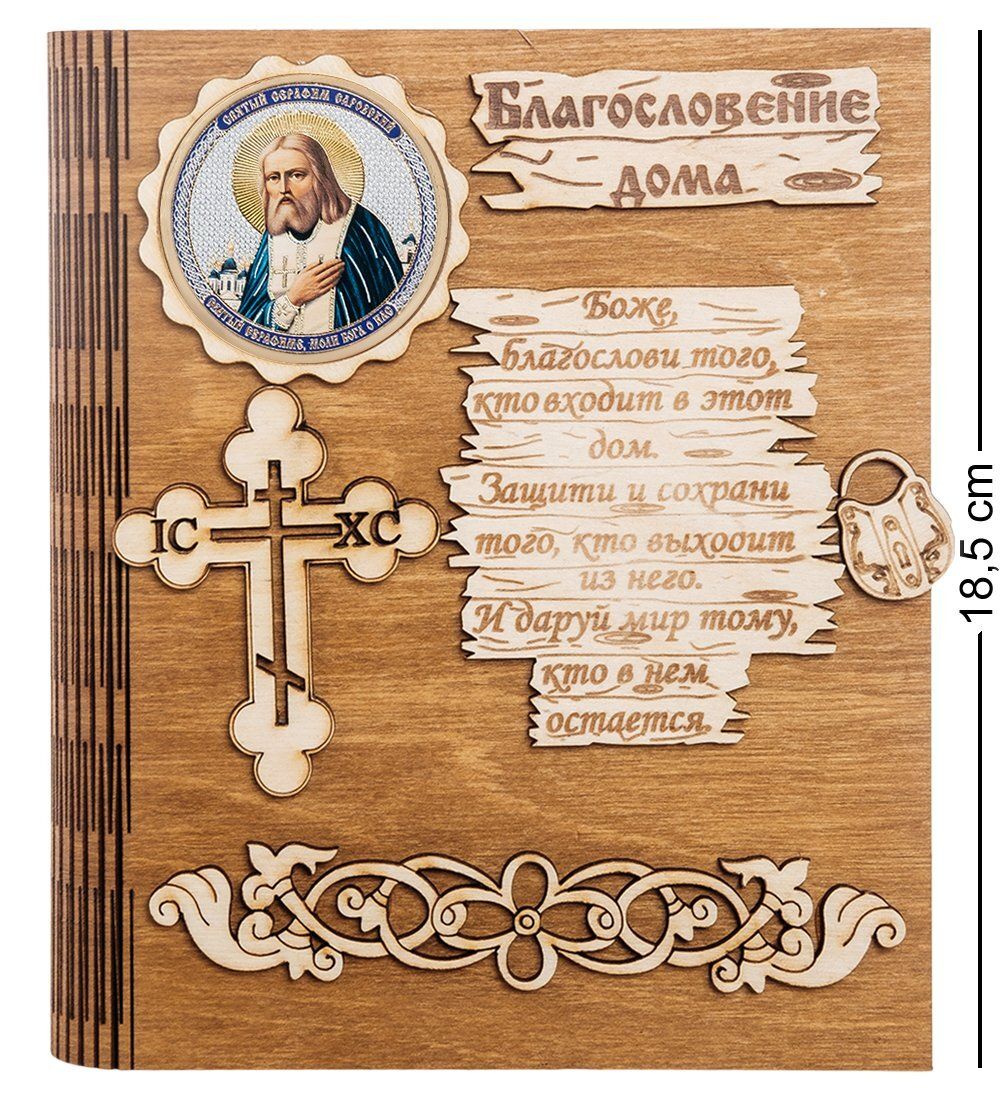 СВЯТЫЙ СЕРАФИМ САРОВСКИЙ
СВЯТЫЙ СЕРАФИМЕ, МОЛИ БОГА О НАС
Благословение
дома
Боже,
благослови того,
кто входит в этот
дом.
Защити и сохрани
того, кто выходит
из него.
И даруй мир тому,
кто в нем
остается.
IC XC
18,5 cm